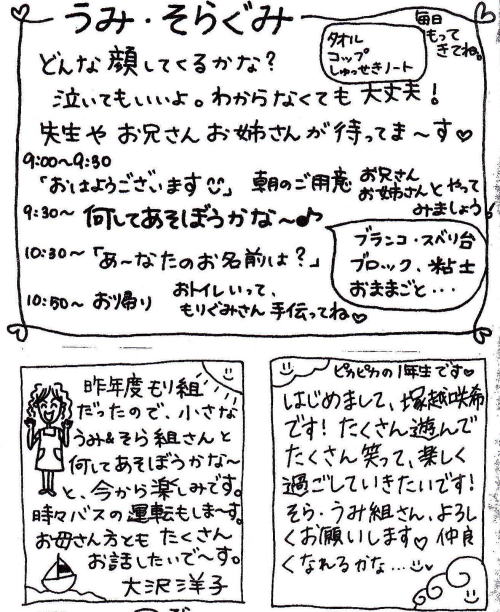 うみ・そらぐみ
毎日
もって
きてね。
タオル
コップ
しゅっせきノート
どんな顔してくるかな？
泣いてもいいよ。わからなくても大丈夫！
先生や お兄さん お姉さんが待ってま〜す♡
9:00〜9:30
「おはようございます」 朝のご用意 お兄さん
お姉さんとやって
みましょう
9:30〜 何してあそぼうかな〜♪
10:30〜「あ〜なたのお名前は？」
ブランコ・スベリ台
ブロック、粘土
おままごと・・・
10:50〜 お帰り おトイレいって、
もりぐみさん手伝ってね♡
昨年度もり組
だったので、小さな
うみ&そら組さんと
何してあそぼうかな〜
と、今から楽しみです。
時々バスの運転もしま〜す。
お母さん方とも たくさん
お話したいで〜す。
大沢洋子
ピカピカの1年生です♡
はじめまして、塚越咲希
です！たくさん遊んで
たくさん笑って、楽しく
過ごしていきたいです！
そら・うみ組さん、よろし
くお願いします♡ 仲良
くなれるかな…